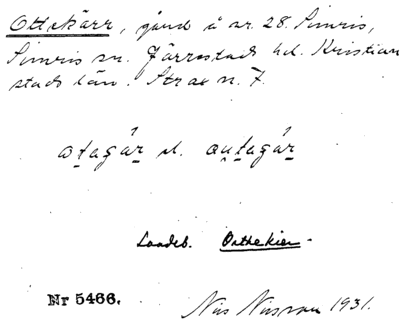 Ottekärr, gård å nr. 28. Simris,
Simris sn. Järrestads hd. Kristian
stads län. Strax n. 7.
atagár el. autagár
Landeb. Otthekier.
Nr 5466.
Nils 1931.